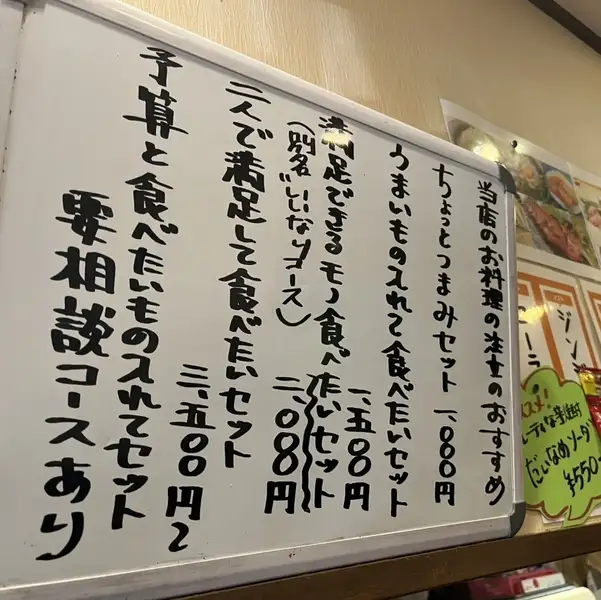 当店のお料理の注文のおすすめ
ちょっとつまみセット 一、〇〇〇円
うまいもの入れて食べたいセット
一、五〇〇円
満足できるモノ食べたいセット
(別名"いいなりコース)
二、〇〇〇円
二人で満足して食べたいセット
三、五〇〇円〜
予算と食べたいもの入れてセット
要相談コースあり
ジン
ーラ
スメ!
だいなめソーダ
¥550-